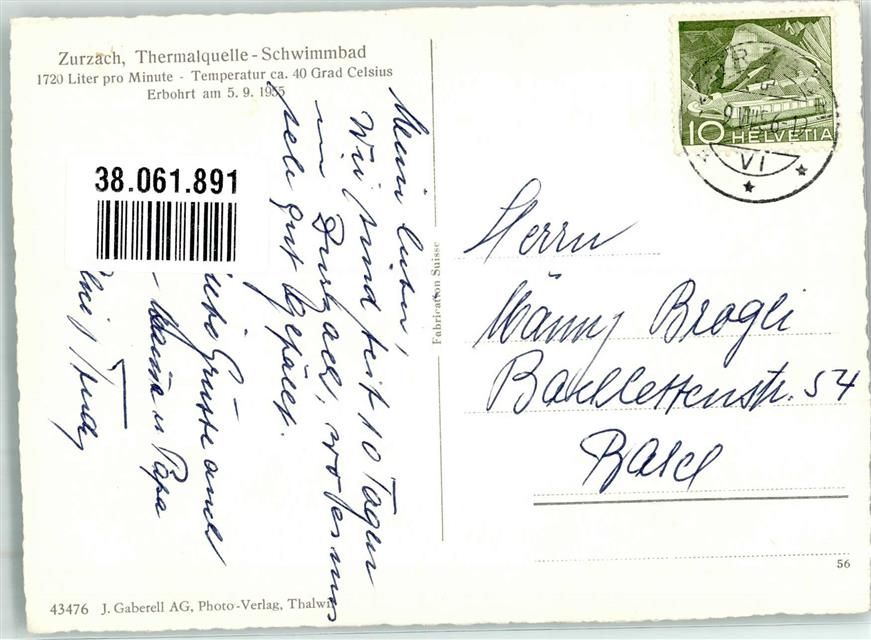 Zurzach, Thermalquelle - Schwimmbad
1720 Liter pro Minute - Temperatur ca. 40 Grad Celsius
Erbohrt am 5. 9. 1955
38.061.891
Meine lieben,
Wir sind seit 10 Tagen
in Zurzach, wo es uns
sehr gut gefällt.
Grüsse auch
u Papa
Fabrication Suisse
10 HELVETIA
VI
Herrn
Männy Brogli
Bachlettenstr. 54
Basel
56
43476 J. Gaberell AG, Photo-Verlag, Thalwil